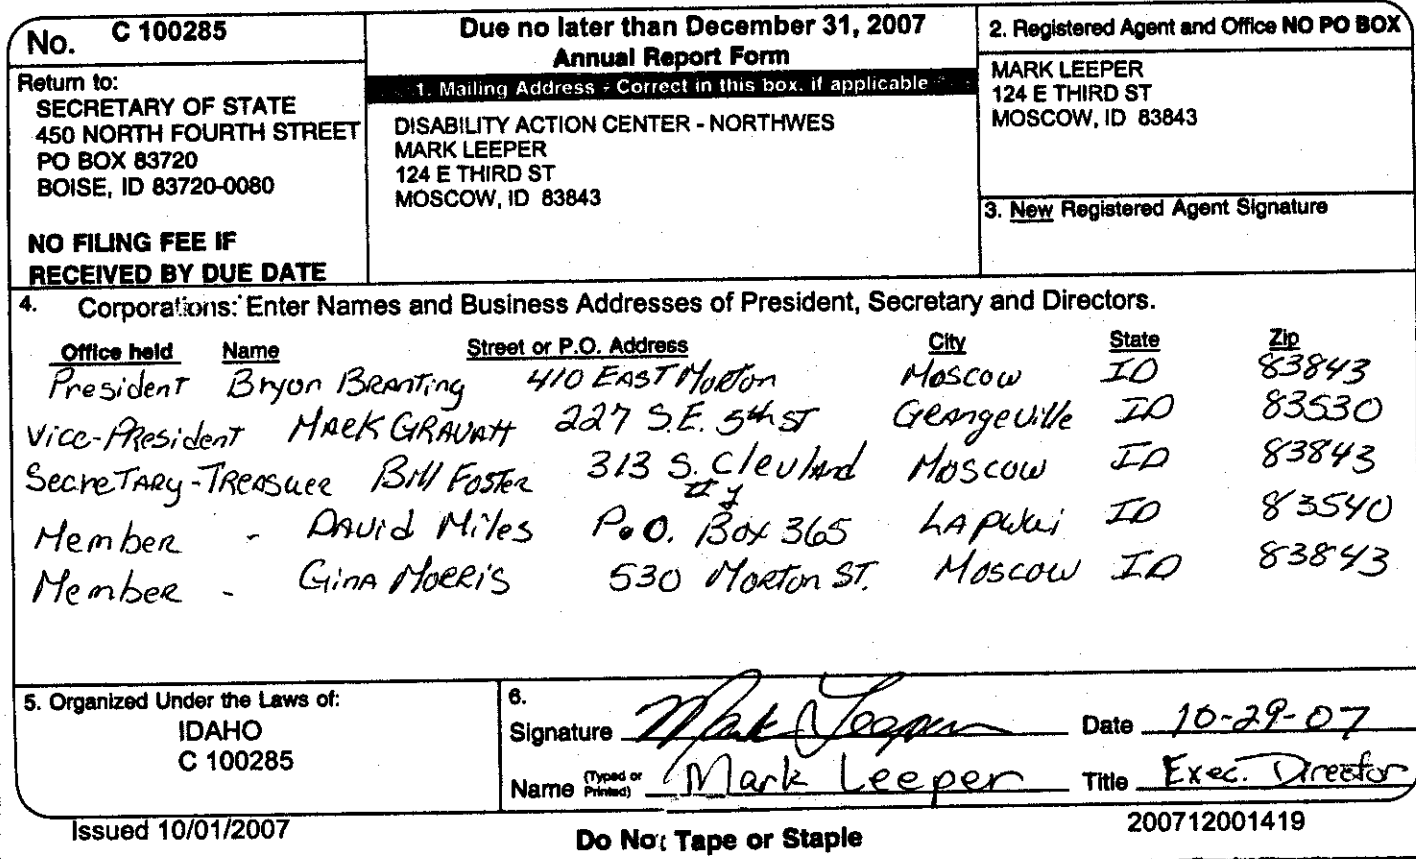 No. C 100285
Return to:
SECRETARY OF STATE
450 NORTH FOURTH STREET
PO BOX 83720
BOISE, ID 83720-0080
NO FILING FEE IF
RECEIVED BY DUE DATE
Due no later than December 31, 2007
Annual Report Form
1. Mailing Address - Correct in this box, if applicable
DISABILITY ACTION CENTER - NORTHWES
MARK LEEPER
124 E THIRD ST
MOSCOW, ID 83843
2. Registered Agent and Office NO PO BOX
MARK LEEPER
124 E THIRD ST
MOSCOW, ID 83843
3. New Registered Agent Signature
4. Corporations: Enter Names and Business Addresses of President, Secretary and Directors.
Office held Name Street or P.O. Address City State Zip
President Bryon Branting 410 East Morton Moscow ID 83843
Vice-President Mark Gravatt 227 S.E. 5th ST Grangeville ID 83530
Secretary-Treasurer Bill Foster 313 S. Clevland Moscow ID 83843
Member - David Miles P.O. Box 365 Lapwai ID 83540
Member - Gina Morris 530 Morton ST. Moscow ID 83843
5. Organized Under the Laws of:
IDAHO
C 100285
6.
Signature Mark Leeper Date 10-29-07
Name (Typed or Printed) Mark Leeper Title Exec. Director
Issued 10/01/2007
Do Not Tape or Staple
200712001419